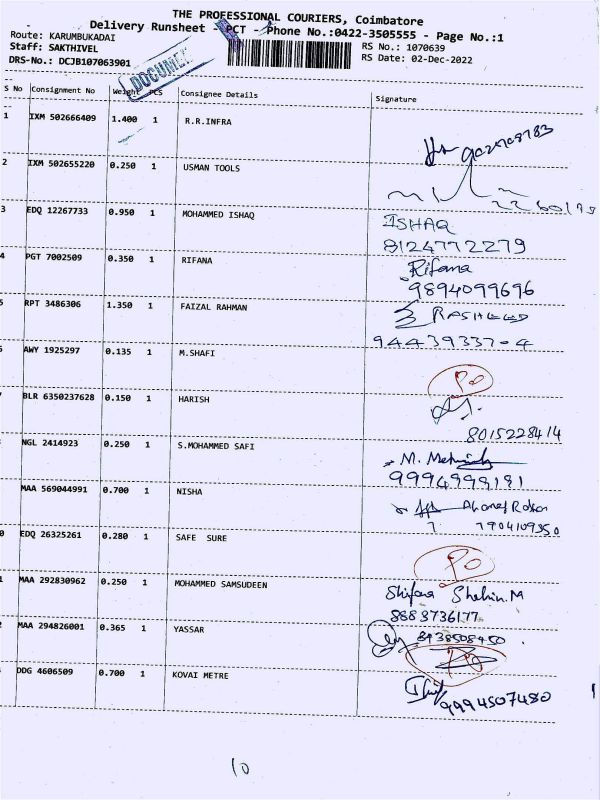 THE PROFESSIONAL COURIERS, Coimbatore
Delivery Runsheet - PCT - Phone No.:0422-3505555 - Page No.:1
Route: KARUMBUKADAI
RS No.: 1070639
Staff: SAKTHIVEL
RS Date: 02-Dec-2022
DRS-No.: DCJB107063901
DOCUMENT
S No Consignment No Weight PCS Consignee Details Signature
1 IXM 502666409 1.400 1 R.R.INFRA
2 IXM 502655220 0.250 1 USMAN TOOLS
3 EDQ 12267733 0.950 1 MOHAMMED ISHAQ ISHAQ
8124772279
4 PGT 7002509 0.350 1 RIFANA Rifana
9894099696
5 RPT 3486306 1.350 1 FAIZAL RAHMAN RASHEED
9443933704
AWY 1925297 0.135 1 M.SHAFI PO
BLR 6350237628 0.150 1 HARISH
8015228414
NGL 2414923 0.250 1 S.MOHAMMED SAFI M.
9994999191
MAA 569044991 0.700 1 NISHA
7904109350
0 EDQ 26325261 0.280 1 SAFE SURE PO
1 MAA 292830962 0.250 1 MOHAMMED SAMSUDEEN Shifana Shahin.M
8883736177
2 MAA 294826001 0.365 1 YASSAR 8438508450
DDG 4606509 0.700 1 KOVAI METRE
9994507480
10